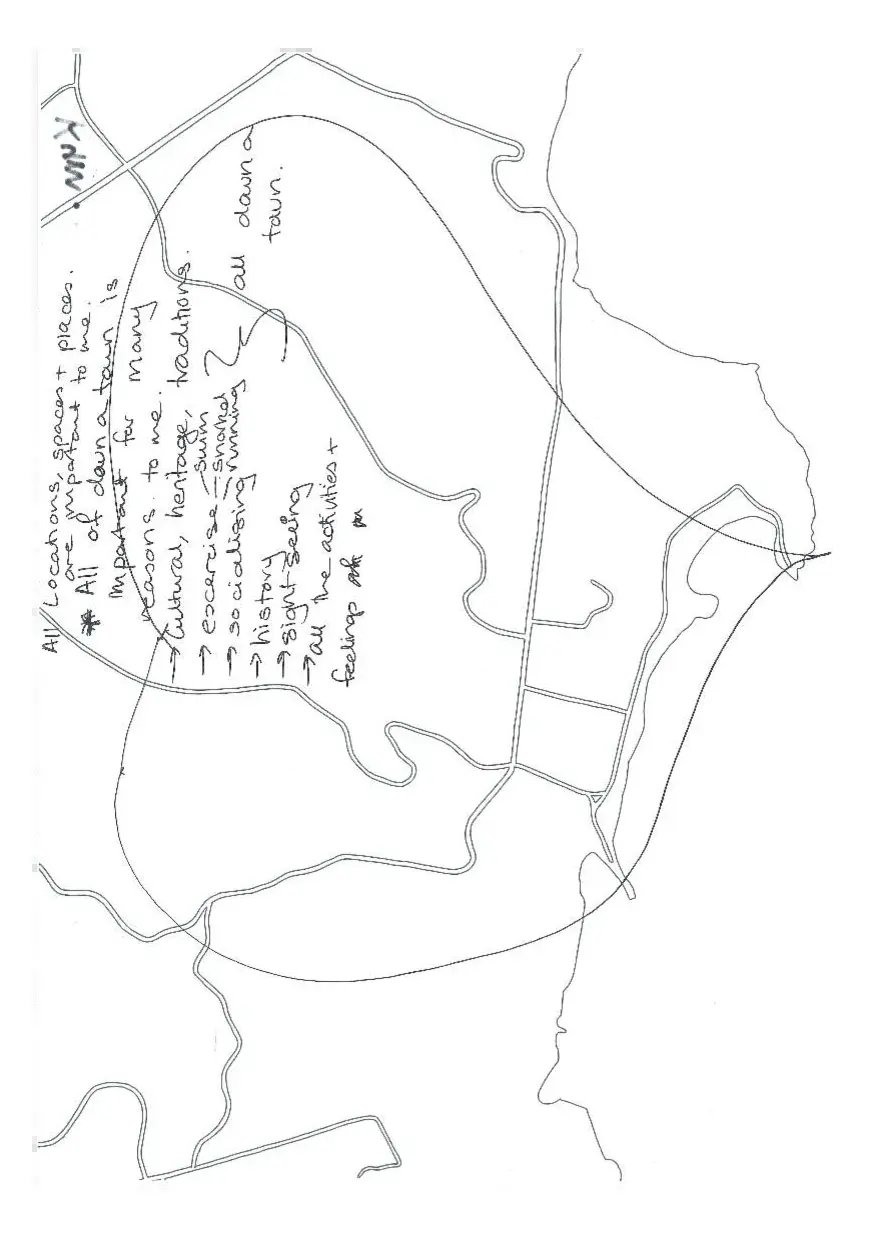 All Locations, spaces + places.
are important to me.
* All of dawn a tawn is
important for many
reasons to me.
→ Cultural, heritage, traditions.
→ excercise - swim
- snorkel
- running
→ socialising
all dawn a
tawn.
→ history
→ sight seeing
→ all the activities +
feelings